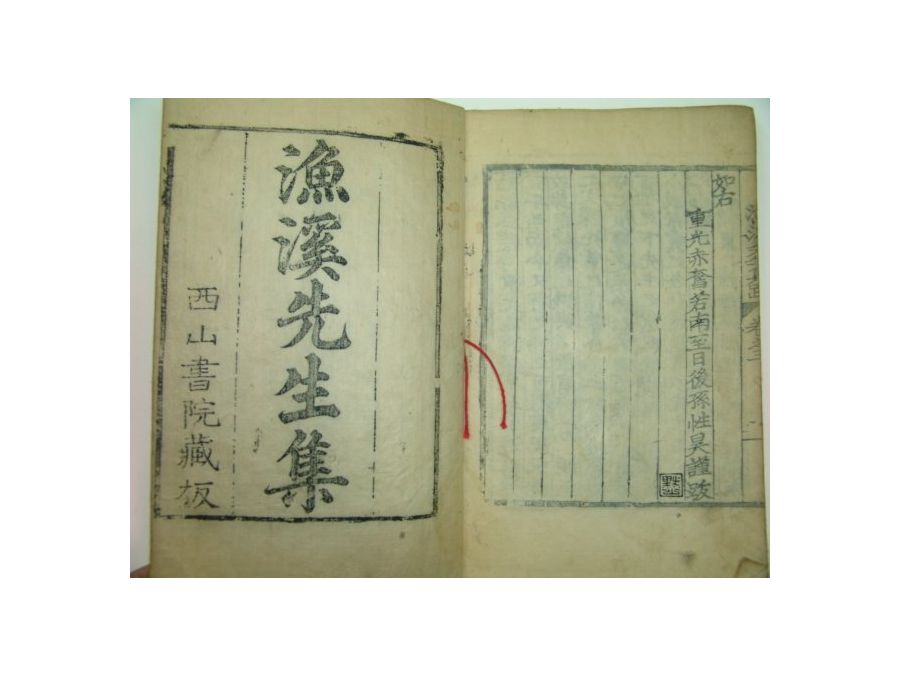 如右
重光赤奮若南至日後孫性昊謹跋
漁溪先生集
西山書院藏板